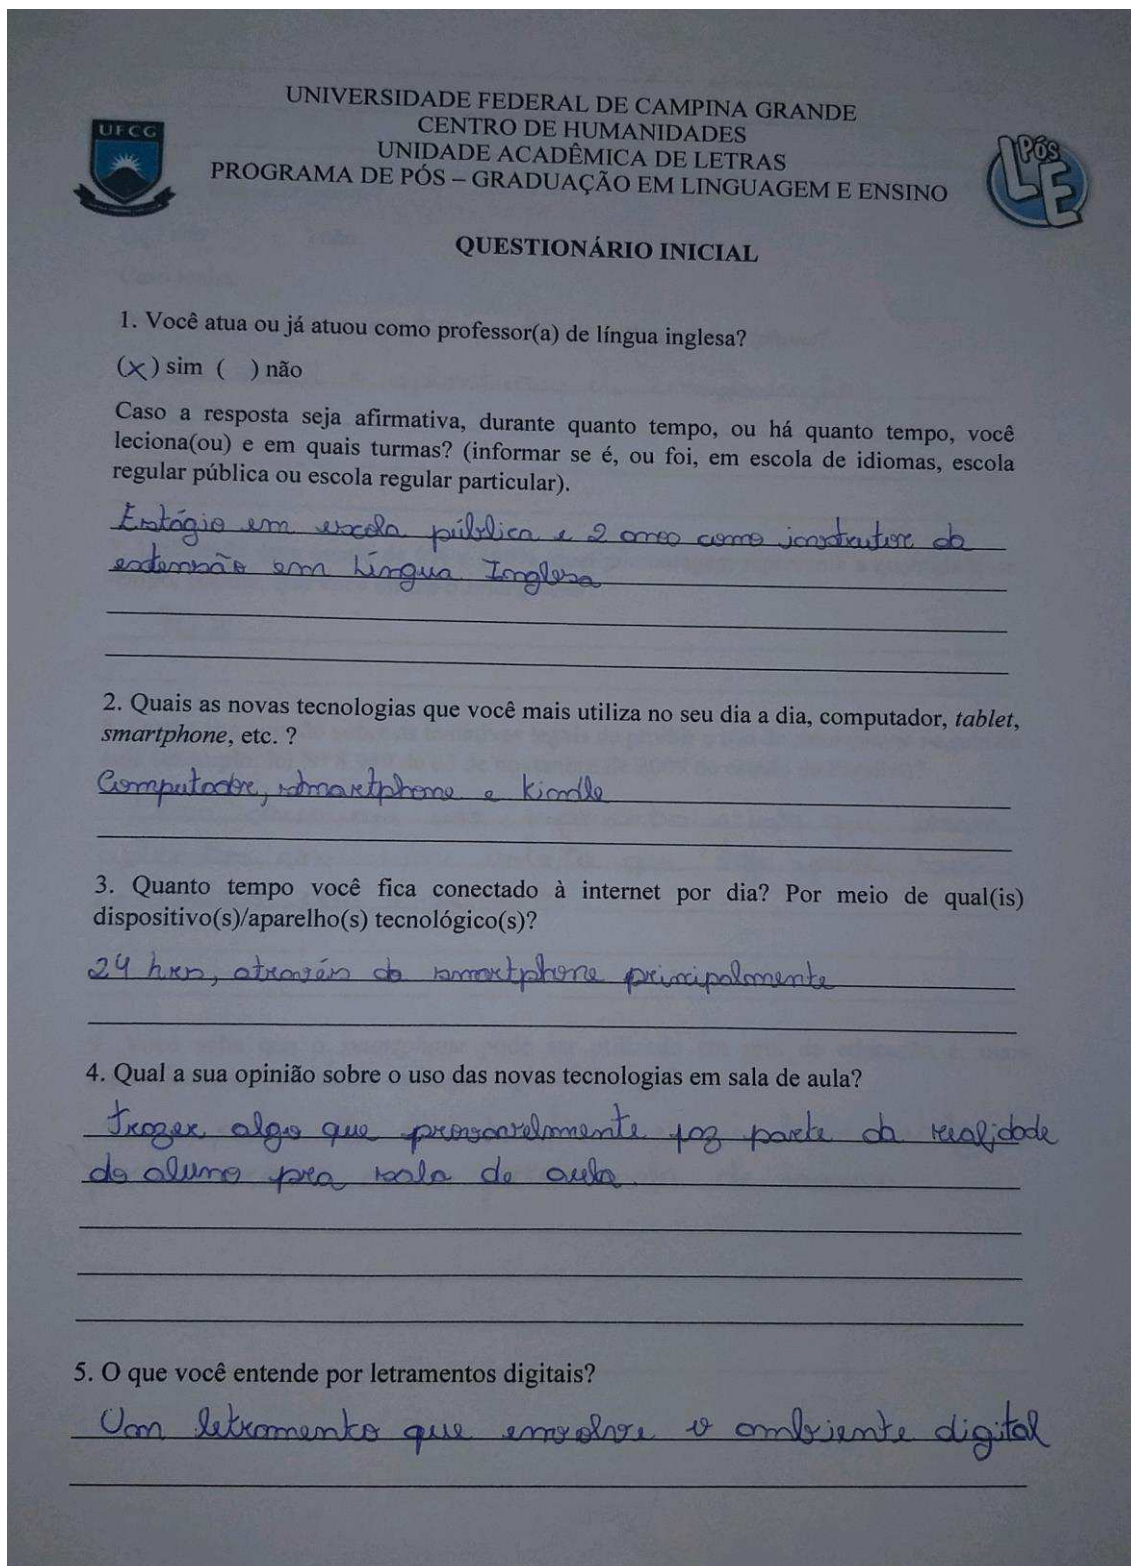 UNIVERSIDADE FEDERAL DE CAMPINA GRANDE
UFCG
CENTRO DE HUMANIDADES
UNIDADE ACADÊMICA DE LETRAS
PROGRAMA DE PÓS – GRADUAÇÃO EM LINGUAGEM E ENSINO
PÓS
LE
QUESTIONÁRIO INICIAL
1. Você atua ou já atuou como professor(a) de língua inglesa?
(x) sim ( ) não
Caso a resposta seja afirmativa, durante quanto tempo, ou há quanto tempo, você
leciona(ou) e em quais turmas? (informar se é, ou foi, em escola de idiomas, escola
regular pública ou escola regular particular).
Estágio em escola pública e 2 anos como instrutor da
extensão em Língua Inglesa
2. Quais as novas tecnologias que você mais utiliza no seu dia a dia, computador, tablet,
smartphone, etc. ?
Computador, smartphone e kindle
3. Quanto tempo você fica conectado à internet por dia? Por meio de qual(is)
dispositivo(s)/aparelho(s) tecnológico(s)?
24 hrs, através do smartphone principalmente
4. Qual a sua opinião sobre o uso das novas tecnologias em sala de aula?
Trazer algo que provavelmente faz parte da realidade
do aluno pra sala de aula
5. O que você entende por letramentos digitais?
Um letramento que envolve o ambiente digital